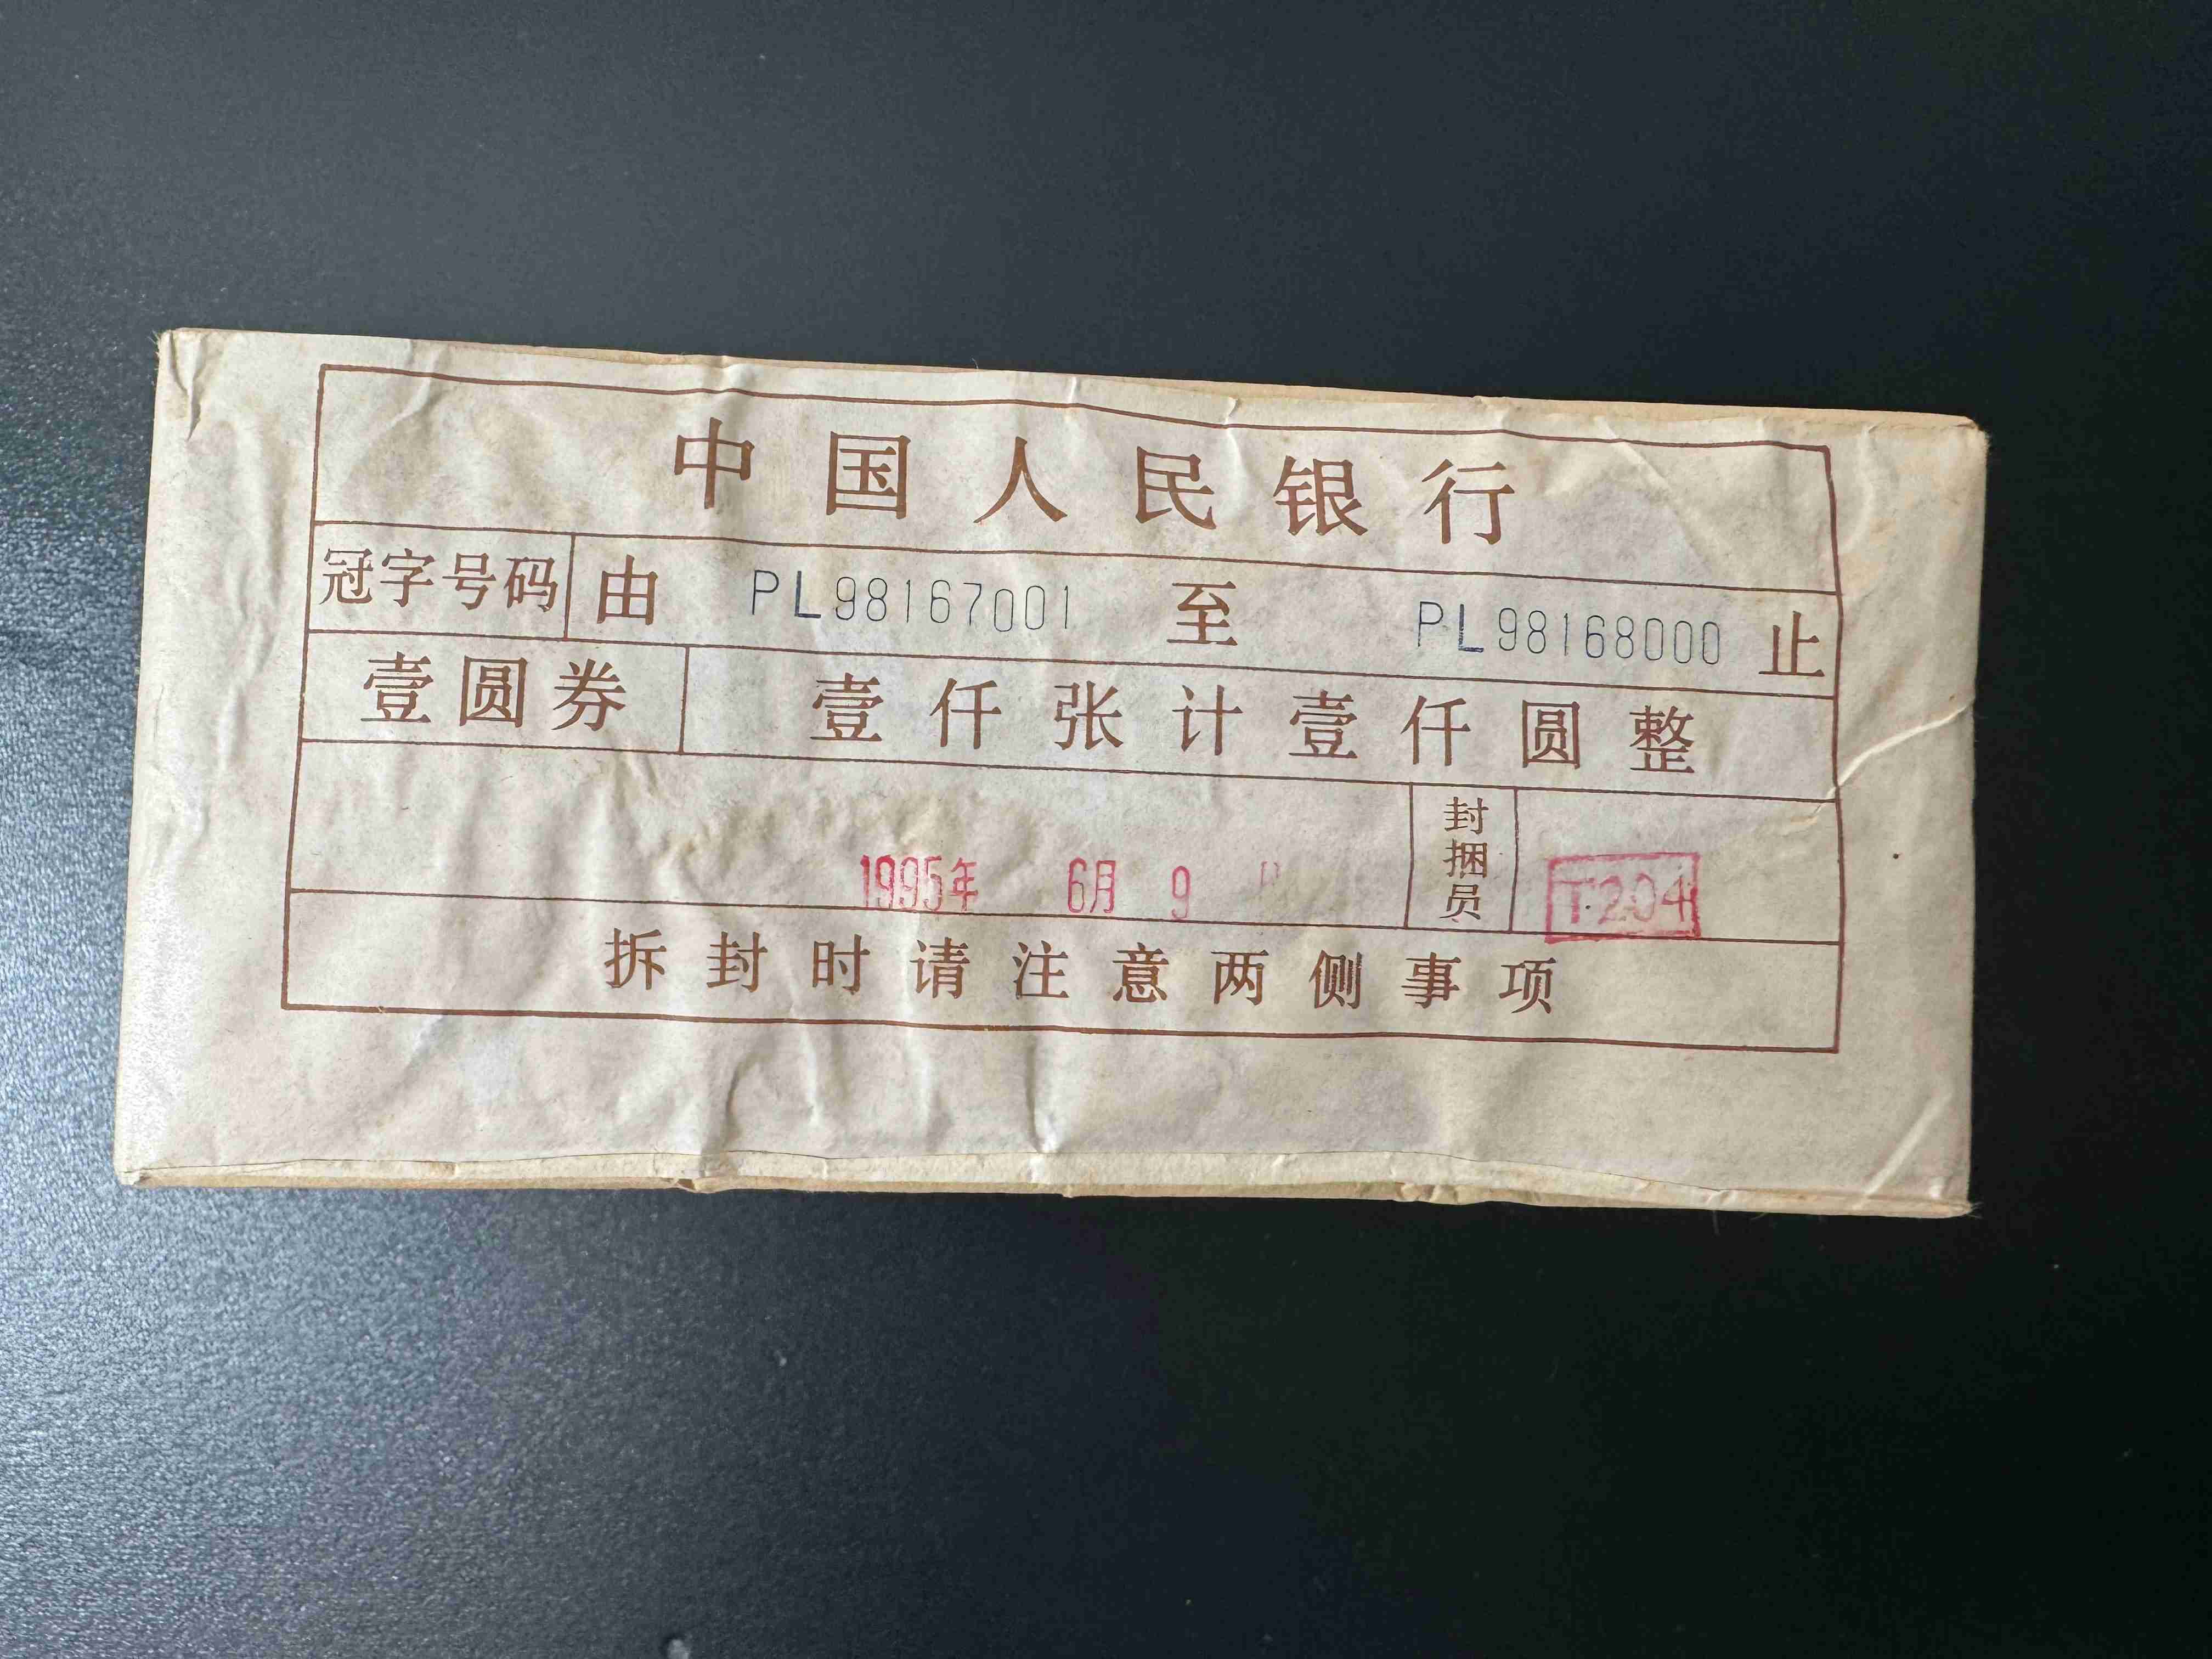 中国人民银行
冠字号码 由 PL98167001 至 PL98168000 止
壹圆券 壹仟张计壹仟圆整
1995年 6月 9 封捆员 T204
拆封时请注意两侧事项